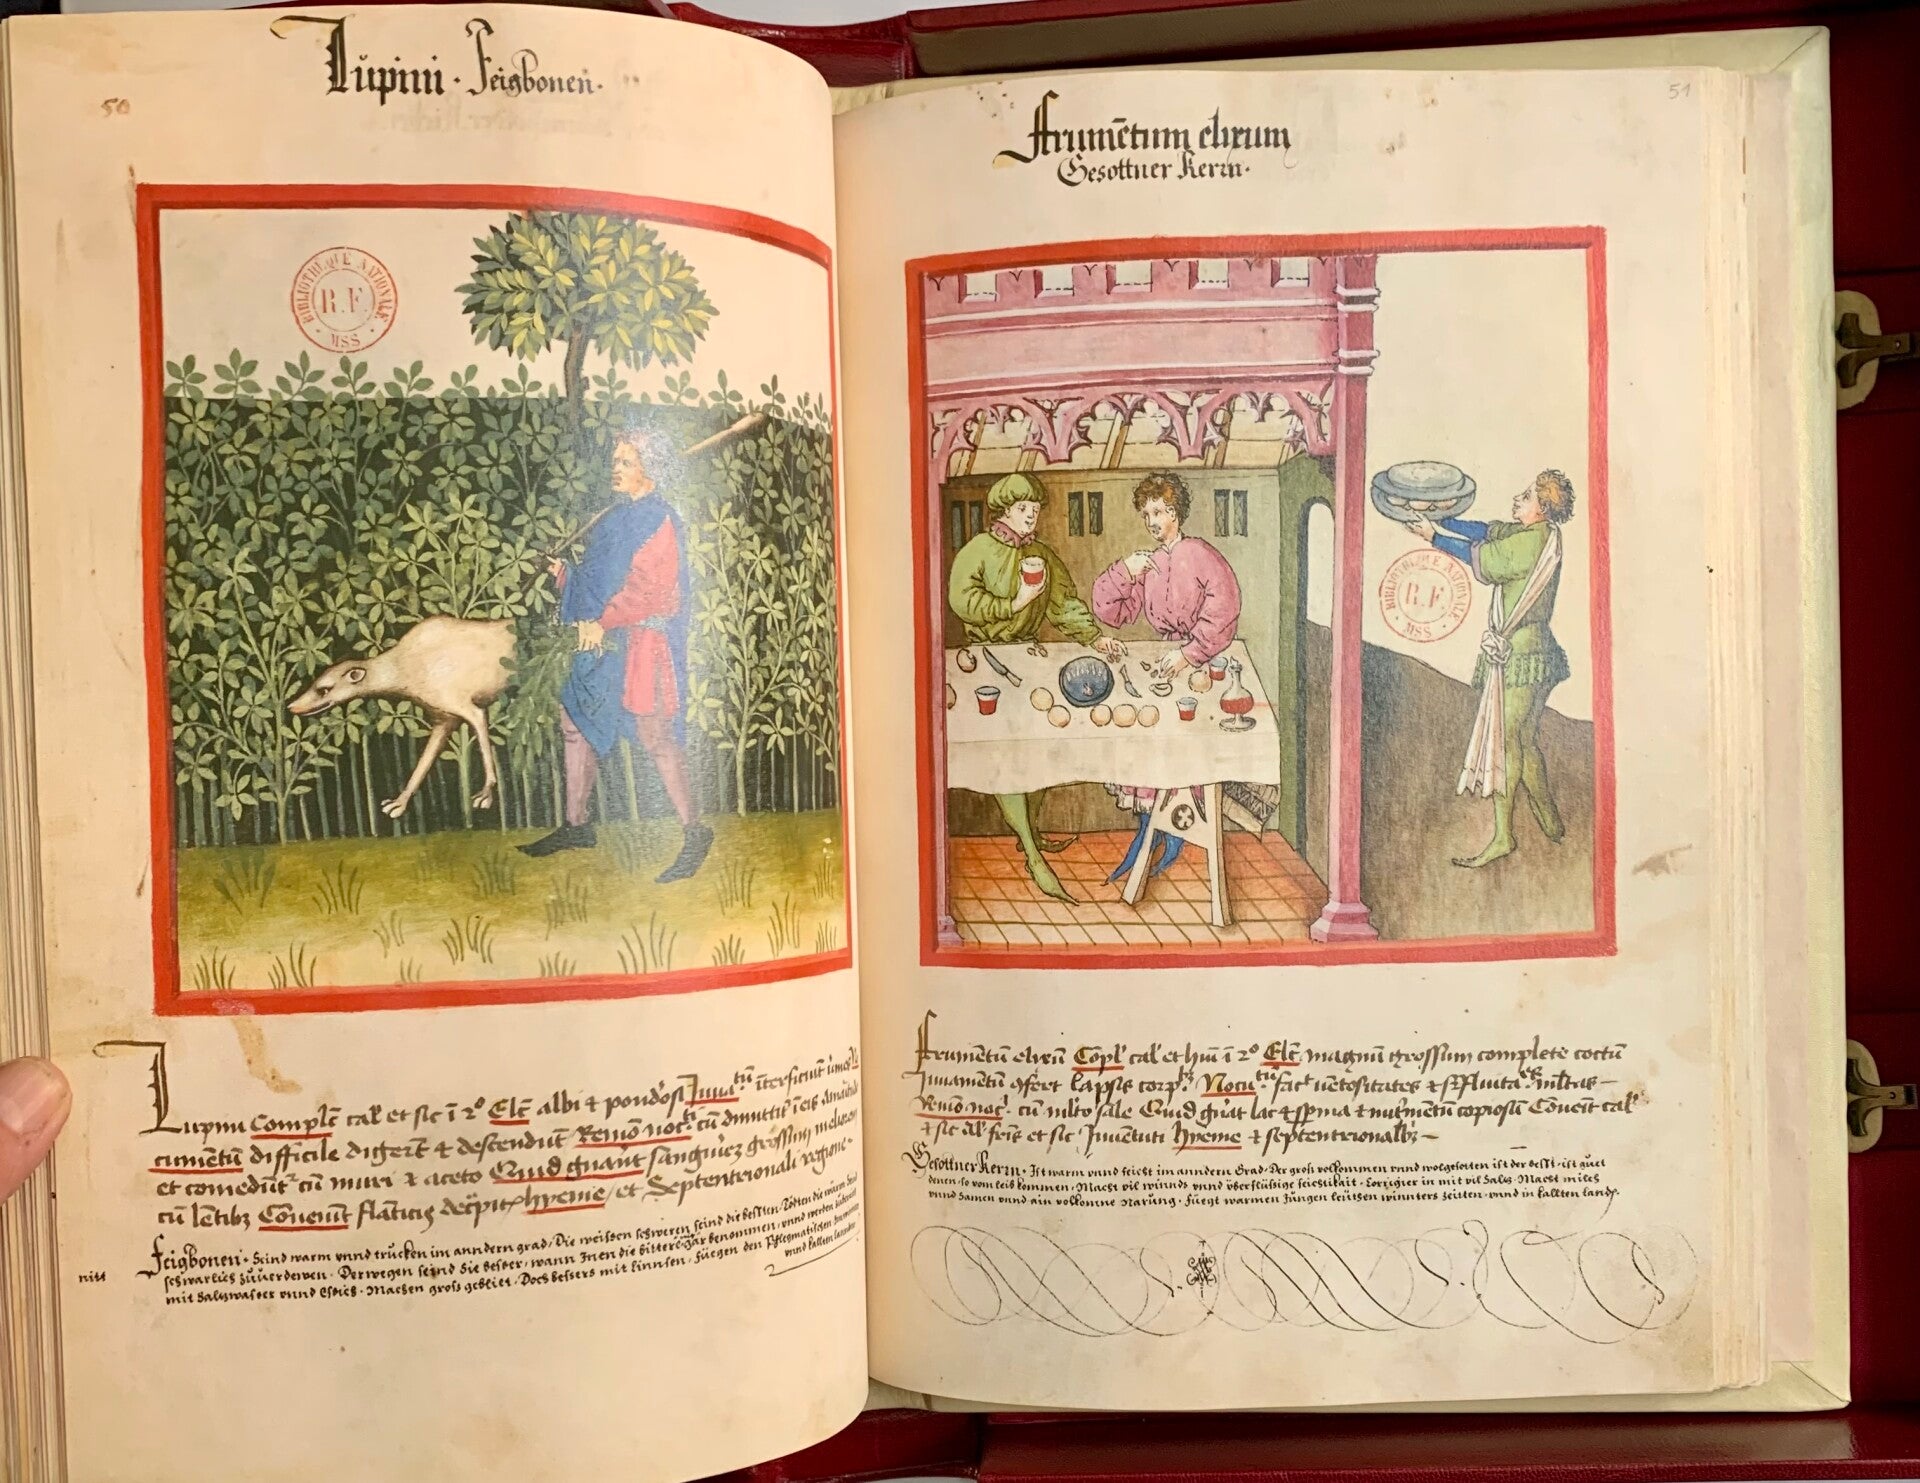 50
Lupini · Feigbonen ·
BIBLIOTHEQUE NATIONALE
R.F.
MSS
Lupini Complē cal̄ et sic ī 2º Elc̄ albi ⁊ pondōsi Iuua
cumētū difficile digerūt ⁊ descendūt Remō noc̄ cū dimittit̄
et comedūt̄ cū muri ⁊ aceto Quid gnāut sanguīez grossum
cū lētibȝ Conueniūt flāticis hyeme / et Septentrionali regione ·
Feigbonen · Seind warm vnnd trucken im anndern grad / Die weissen schweren seind die besten ·
nitt
schwarlich zuuerdewen · Derwegen seind Sie besser, wann Inen die benommen, vnnd werden
mit Saltzwasser vnnd Essich · Machen gross gebliet · Doch bessers mit linnsen · Fuegen den Phlegmatischen
vnnd kallten
51
Frumētum elixum
Gesottner Kern ·
BIBLIOTHEQUE NATIONALE
R.F.
MSS
Frumētū elixū Cōpl̄ cal̄ et hūi ī 2º Elc̄ magnū grossum complete coctū
Iuuamētū 9fert lapsis corpȝ Nocu fac̄t uētositates ⁊
Remō noc̄ · cū mlto sale Quid gnāt lac ⁊ spma ⁊ nutmētū copiosū Conēit cal̄
⁊ sic et sic Iuuentuti hyeme ⁊ septentrionalibȝ —
Gesottner Kern · Ist warm vnnd feicht im anndern Grad · Der gross volkommen vnnd wolgesotten ist der besst · ist guet
denen so vom leib kommen · Macht vil winnds vnnd überflüssige feichtikait · Corrigier in mit vil Saltz · Macht milch
vnnd Samen vnnd ain volkomne Narung · Fuegt warmen Jungen leütten winnters zeitten · vnnd in kallten lands ·